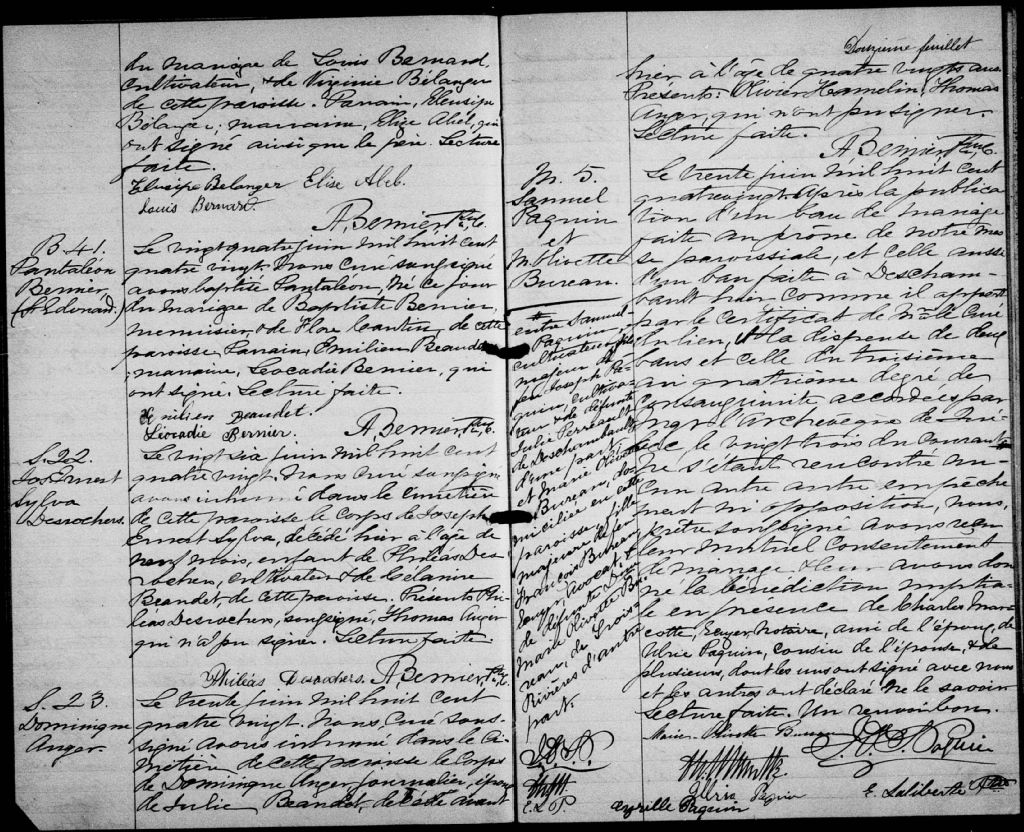 du mariage de Louis Bernard,
cultivateur, & de Virginie Bélanger
de cette paroisse. Parrain, Eleusipe
Bélanger; marraine, Elize Abel, qui
ont signé ainsi que le père. Lecture
faite.
Eleusipe Belanger Elise Abel.
Louis Bernard.
A. Bernier, Ptre, C.
B. 41.
Pantaléon
Bernier
(St Edouard)
Le vingt quatre juin mil huit cent
quatre vingt. Nous Curé soussigné
avons baptisé Pantaléon, né ce jour
du mariage de Baptiste Bernier,
menuisier, & de Flore Cantin, de cette
paroisse. Parrain, Emilien Beaudet
; marraine, Léocadie Bernier, qui
ont signé. Lecture faite.
Emilien Beaudet.
Léocadie Bernier. A. Bernier, Ptre, C.
S. 22.
Jos Ernest
Sylva
Desrochers.
Le vingt six juin mil huit cent
quatre vingt. Nous Curé soussigné
avons inhumé dans le cimetière
de cette paroisse le corps de Joseph
Ernest Sylva, décédé hier à l'âge de
neuf mois, enfant de Philéas Des
rochers, cultivateur & de Célanire
Beaudet, de cette paroisse. Présents Phi
léas Desrochers, soussigné, Thomas Auger
qui n'a pu signer. Lecture faite.
Philéas Desrochers. A. Bernier, Ptre, C.
S. 23.
Dominique
Auger.
Le trente juin mil huit cent
quatre vingt. Nous, Curé sous-
signé avons inhumé dans le ci-
metière de cette paroisse le corps
de Dominique Auger, journalier, époux
de Julie Beaudet, décédé avant
Douzième feuillet
hier à l'âge de quatre vingts ans.
Présents: Olivier Hamelin, Thomas
Auger, qui n'ont pu signer.
Lecture faite.
A Bernier, Ptre, C.
M. 5.
Samuel
Paquin
et
M. Olivette
Bureau.
Le trente juin mil huit cent
quatre vingt. Après la publica
tion d'un ban de mariage
faite au prône de notre mes
se paroissiale, et celle aussi
d'un ban faite à Descham
bault hier comme il appert
par le certificat de Mr le Curé
du lieu, # la dispense de deux
bans et celle du troisième
au quatrième degré de
consanguinité accordées par
Mgr l'archevêque de Qué
bec le vingt trois du courant,
ne s'étant rencontré au-
cun autre empêche
ment ni opposition, nous,
Prêtre soussigné avons reçu
leur mutuel consentement
de mariage & leur avons don
né la bénédiction nuptia
le en présence de Charles Mar
cotte, Ecuyer Notaire, ami de l'époux, de
Ulric Paquin, cousin de l'épouse, & de
plusieurs, dont les uns ont signé avec nous
et les autres ont déclaré ne le savoir
Lecture faite. Un renvoi bon.
# entre Samuel
Paquin,
cultivateur, fils
majeur de
feu Joseph Pa-
quin, cultiva-
teur & de défunte
Julie Perrault
de Deschambault
d'une part;
et Marie Olivette
Bureau, do-
miciliée en cette
paroisse, fille
majeure de feu
François Bureau
Ecuyer, Avocat, &
de défunte
Marie Olivette
reau, de Trois-
Rivières d'autre
part.
J. S. P.
E. L. P
Marie Olivette Bureau J. S. Paquin
Ulric Paquin
Cyrille Paquin E. Laliberté Ptre